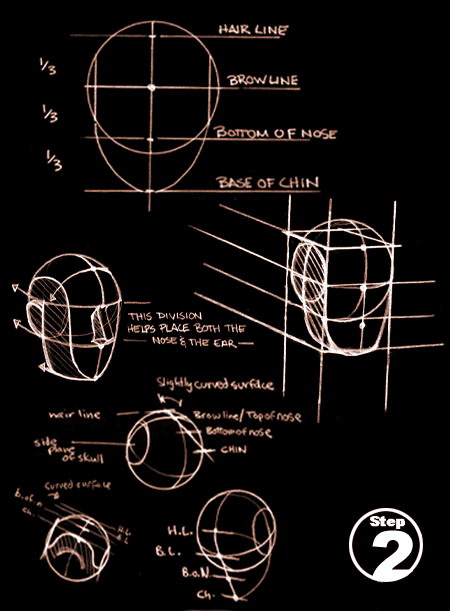 HAIR LINE
1/3
BROWLINE
1/3
BOTTOM OF NOSE
1/3
BASE OF CHIN
THIS DIVISION
HELPS PLACE BOTH THE
NOSE & THE EAR
Slightly curved surface
hair line
Browline/Top of nose
Bottom of nose
side
plane
of skull
CHIN
curved surface
b. of n
ch.
H.L.
B.L.
H.L.
B.L.
B.o.N
Ch.
Step
2